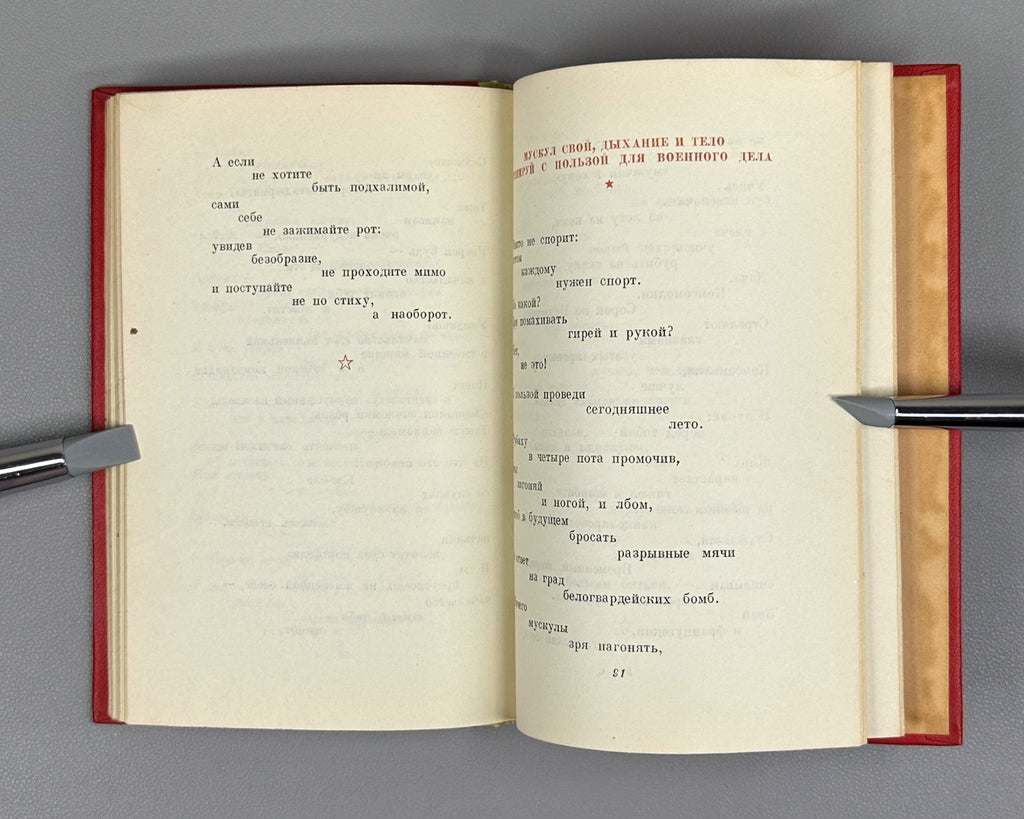 А если
не хотите
быть подхалимой,
сами
себе
не зажимайте рот:
увидев
безобразие,
не проходите мимо
и поступайте
не по стиху,
а наоборот.
МУСКУЛ СВОЙ, ДЫХАНИЕ И ТЕЛО
С ПОЛЬЗОЙ ДЛЯ ВОЕННОГО ДЕЛА
не спорит:
каждому
нужен спорт.
какой?
помахивать
гирей и рукой?
не это!
пользой проведи
сегодняшнее
лето.
в четыре пота промочив,
и ногой, и лбом,
в будущем
бросать
разрывные мячи
на град
белогвардейских бомб.
мускулы
зря нагонять,
81